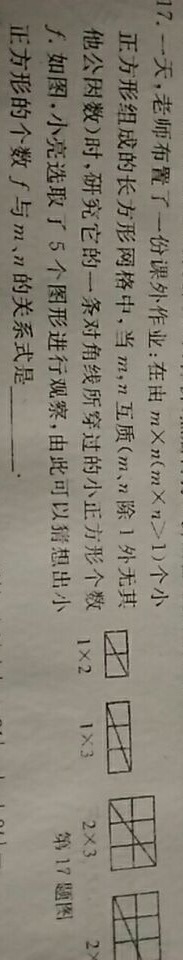 17. 一天,老师布置了一份课外作业:在由 m×n(m×n>1)个小
正方形组成的长方形网格中,当 m,n 互质(m、n 除 1 外无其
他公因数)时,研究它的一条对角线所穿过的小正方形个数
f. 如图,小亮选取了 5 个图形进行观察,由此可以猜想出小
正方形的个数 f 与 m、n 的关系式是______.
1×2 1×3 2×3
第 17 题图